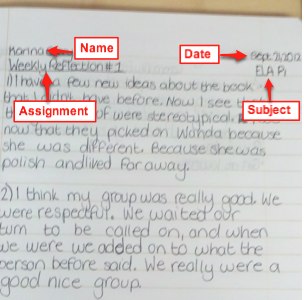 Name
Date
Karina
Sept. 21, 2012
Weekly Reflection #1
ELA P.
1) I have a few new ideas about the book
that I didn't have before. Now I see
Assignment
of were stereotypical.
Subject
now that they picked on Wanda because
she was different. Because she was
polish and lived far away.
2) I think my group was really good. We
were respectful. We waited our
turn to be called on, and when
we were we added on to what the
person before said. We really were a
good nice group.